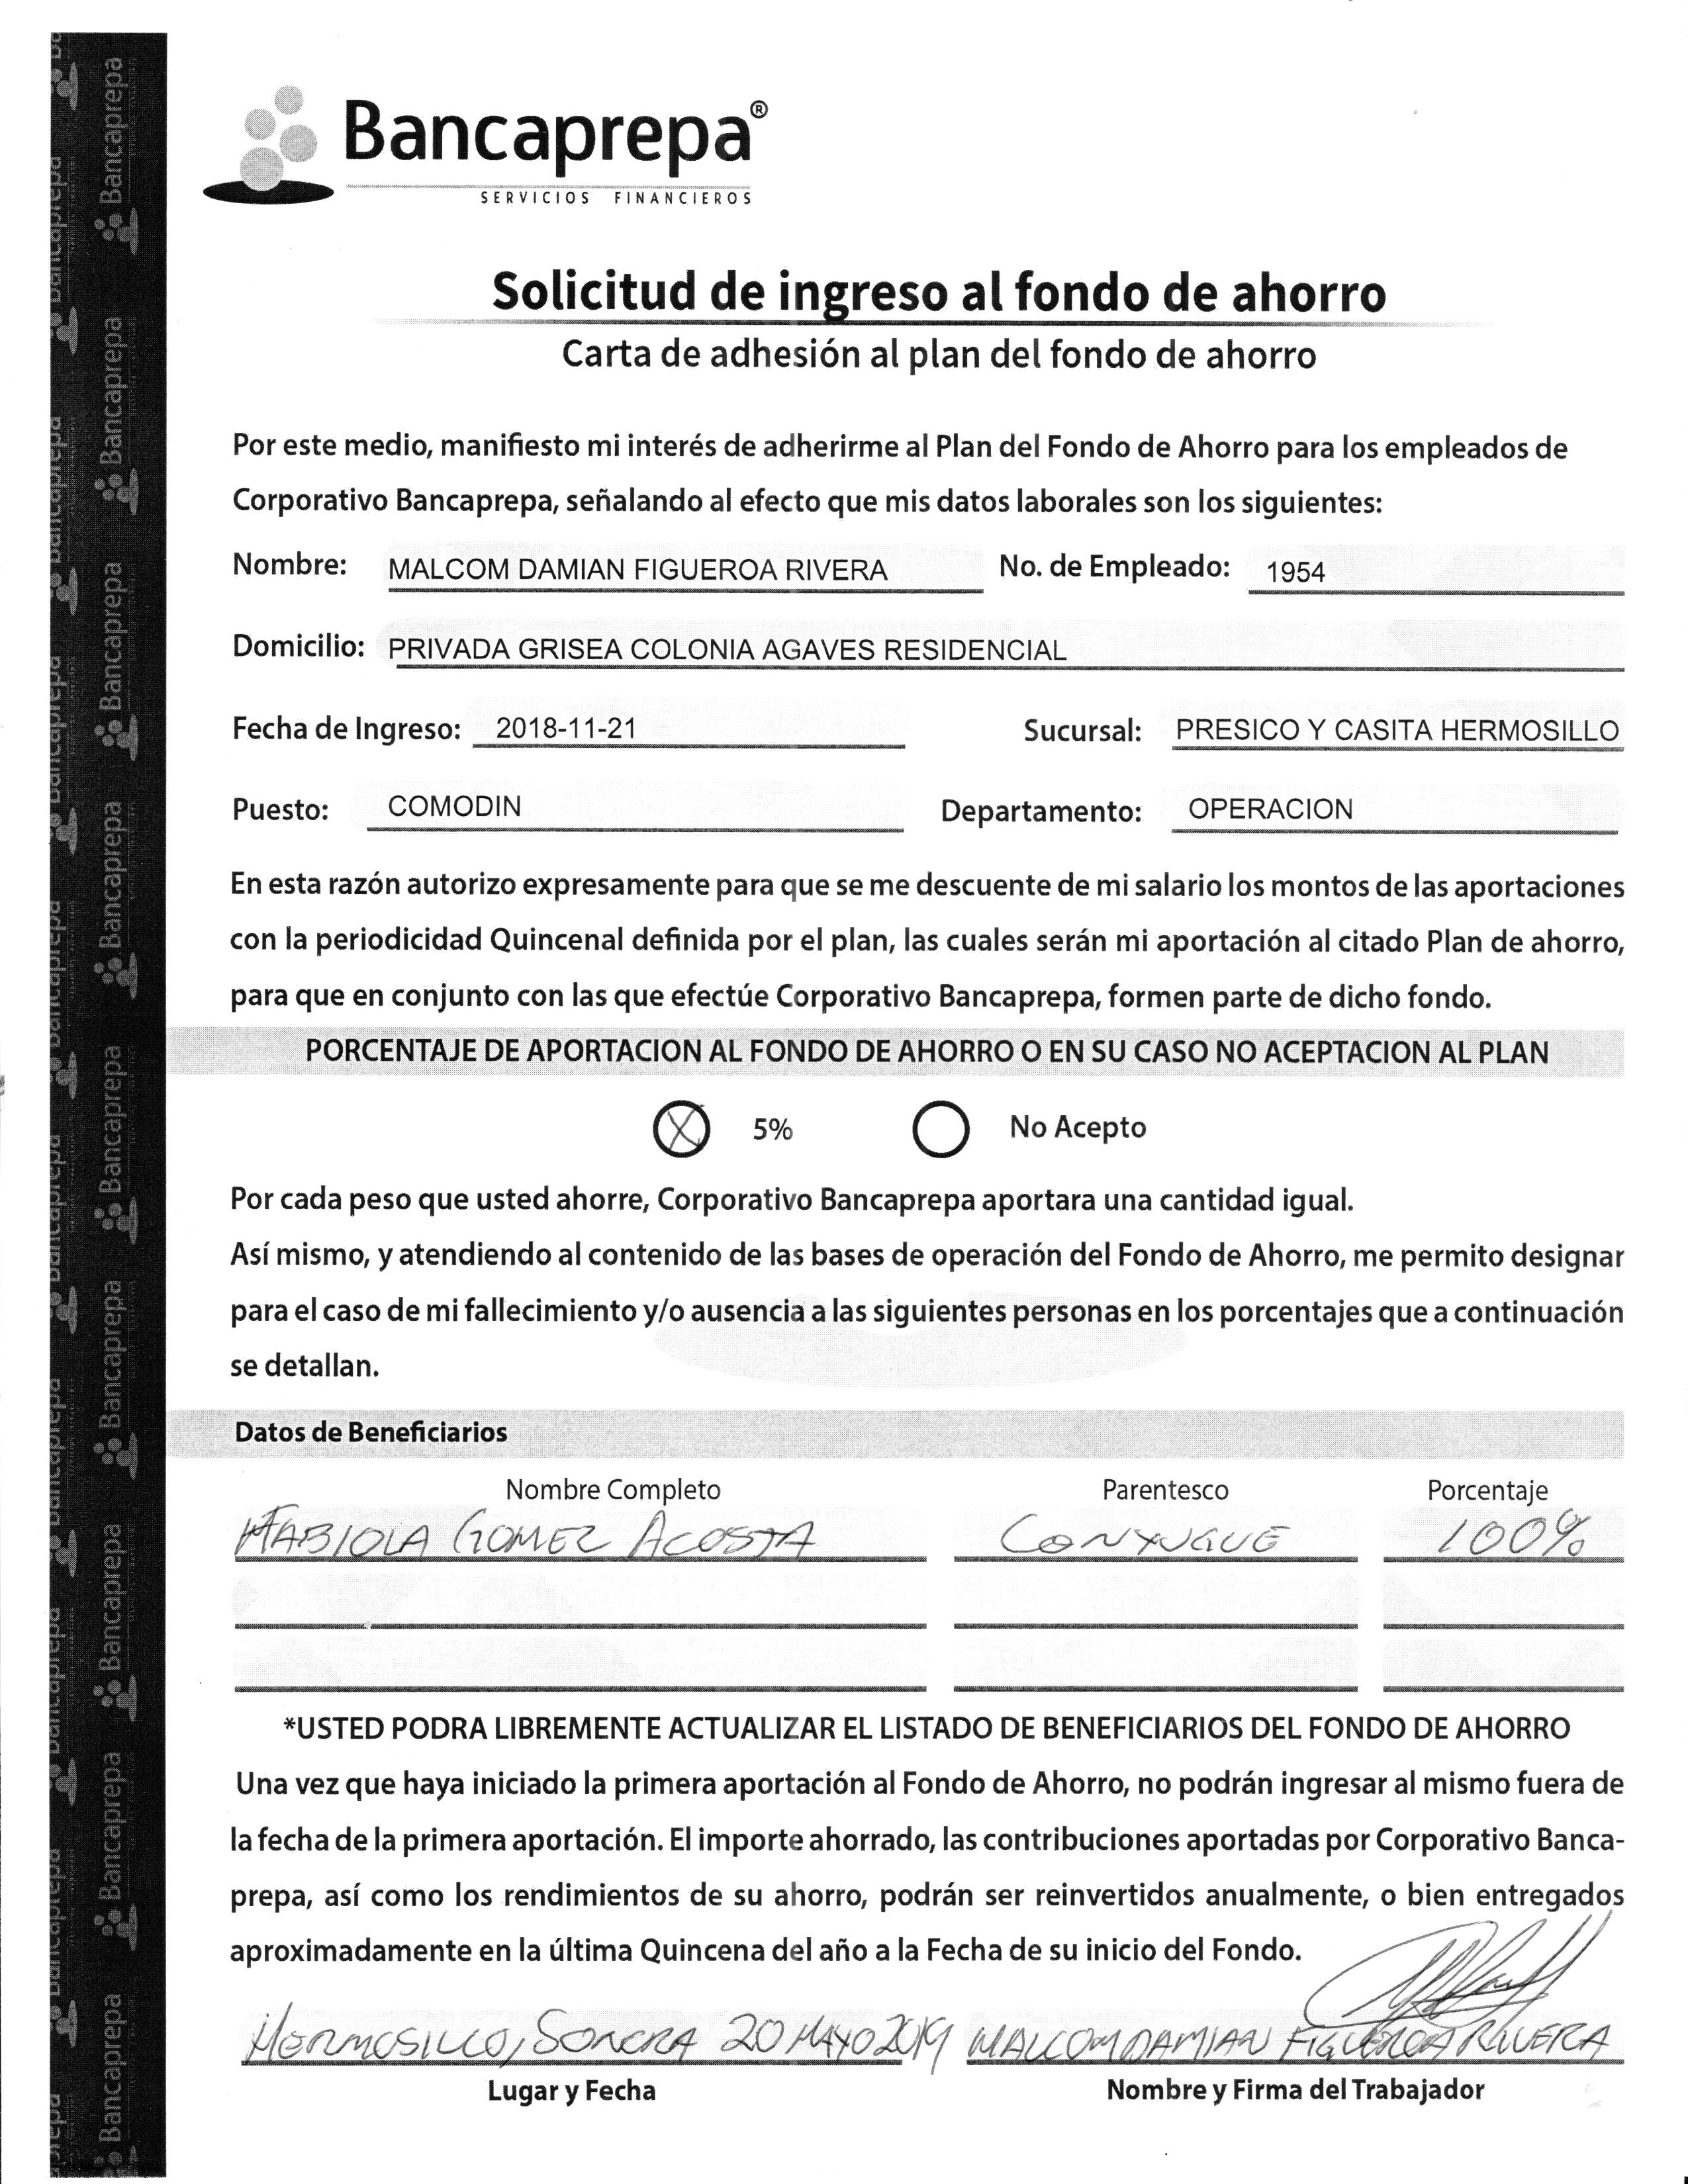 Bancaprepa®
SERVICIOS FINANCIEROS
Solicitud de ingreso al fondo de ahorro
Carta de adhesión al plan del fondo de ahorro
Por este medio, manifiesto mi interés de adherirme al Plan del Fondo de Ahorro para los empleados de
Corporativo Bancaprepa, señalando al efecto que mis datos laborales son los siguientes:
Nombre: MALCOM DAMIAN FIGUEROA RIVERA No. de Empleado: 1954
Domicilio: PRIVADA GRISEA COLONIA AGAVES RESIDENCIAL
Fecha de Ingreso: 2018-11-21 Sucursal: PRESICO Y CASITA HERMOSILLO
Puesto: COMODIN Departamento: OPERACION
En esta razón autorizo expresamente para que se me descuente de mi salario los montos de las aportaciones
con la periodicidad Quincenal definida por el plan, las cuales serán mi aportación al citado Plan de ahorro,
para que en conjunto con las que efectúe Corporativo Bancaprepa, formen parte de dicho fondo.
PORCENTAJE DE APORTACION AL FONDO DE AHORRO O EN SU CASO NO ACEPTACION AL PLAN
X 5% No Acepto
Por cada peso que usted ahorre, Corporativo Bancaprepa aportara una cantidad igual.
Así mismo, y atendiendo al contenido de las bases de operación del Fondo de Ahorro, me permito designar
para el caso de mi fallecimiento y/o ausencia a las siguientes personas en los porcentajes que a continuación
se detallan.
Datos de Beneficiarios
Nombre Completo Parentesco Porcentaje
GOMEZ ACOSTA CONYUGUE 100%
*USTED PODRA LIBREMENTE ACTUALIZAR EL LISTADO DE BENEFICIARIOS DEL FONDO DE AHORRO
Una vez que haya iniciado la primera aportación al Fondo de Ahorro, no podrán ingresar al mismo fuera de
la fecha de la primera aportación. El importe ahorrado, las contribuciones aportadas por Corporativo Banca-
prepa, así como los rendimientos de su ahorro, podrán ser reinvertidos anualmente, o bien entregados
aproximadamente en la última Quincena del año a la Fecha de su inicio del Fondo.
HERMOSILLO, SONORA 20 MAYO 2019 MALCOM DAMIAN FIGUEROA RIVERA
Lugar y Fecha Nombre y Firma del Trabajador